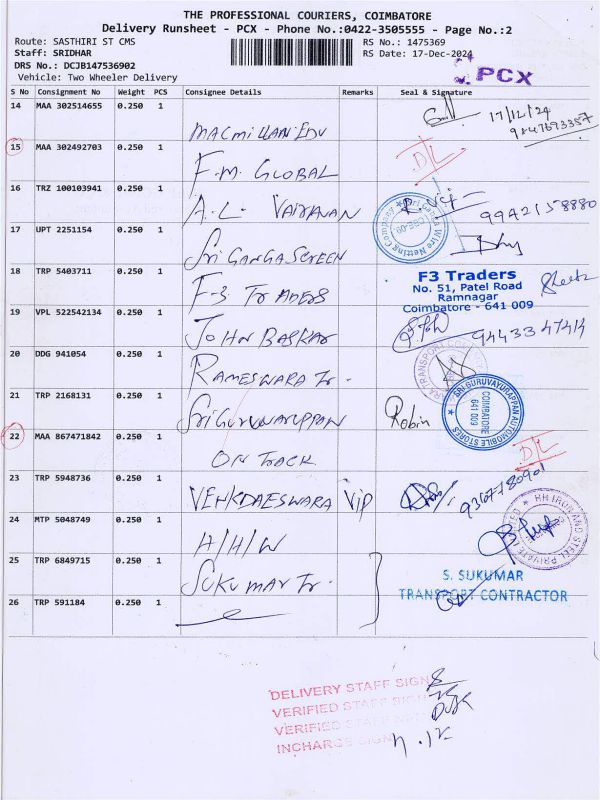 THE PROFESSIONAL COURIERS, COIMBATORE
Delivery Runsheet - PCX - Phone No.:0422-3505555 - Page No.:2
Route: SASTHIRI ST CMS RS No.: 1475369
Staff: SRIDHAR RS Date: 17-Dec-2024
DRS No.: DCJB147536902
Vehicle: Two Wheeler Delivery PCX
S No Consignment No Weight PCS Consignee Details Remarks Seal & Signature
14 MAA 302514655 0.250 1 MACMILLAN EDU 17/12/24
15 MAA 302492703 0.250 1 F.M. GLOBAL D/L
16 TRZ 100103941 0.250 1 A.L. 9942158880
Sri Ganga Wire Netting Company
17 UPT 2251154 0.250 1 Sri GANGA SCREEN
18 TRP 5403711 0.250 1 F-3 TRADERS
F3 Traders
No. 51, Patel Road
Ramnagar
Coimbatore - 641 009
19 VPL 522542134 0.250 1 JOHN BASKAR
20 DDG 941054 0.250 1 RAMESWARA Tr.
21 TRP 2168131 0.250 1 Robin
SRI GURUVAYURAPPAN AUTOMOBILE STORES
COIMBATORE
641 009
22 MAA 867471842 0.250 1 ON TRACK D/L
23 TRP 5948736 0.250 1 VENKDAESWARA Vip
24 MTP 5048749 0.250 1 H/H/W
HH IRON AND STEEL PRIVATE LIMITED
25 TRP 6849715 0.250 1 SUKUMAR Tr.
S. SUKUMAR
TRANSPORT CONTRACTOR
26 TRP 591184 0.250 1
DELIVERY STAFF SIGN
VERIFIED STAFF SIGN
VERIFIED STAFF
INCHARGE SIGN